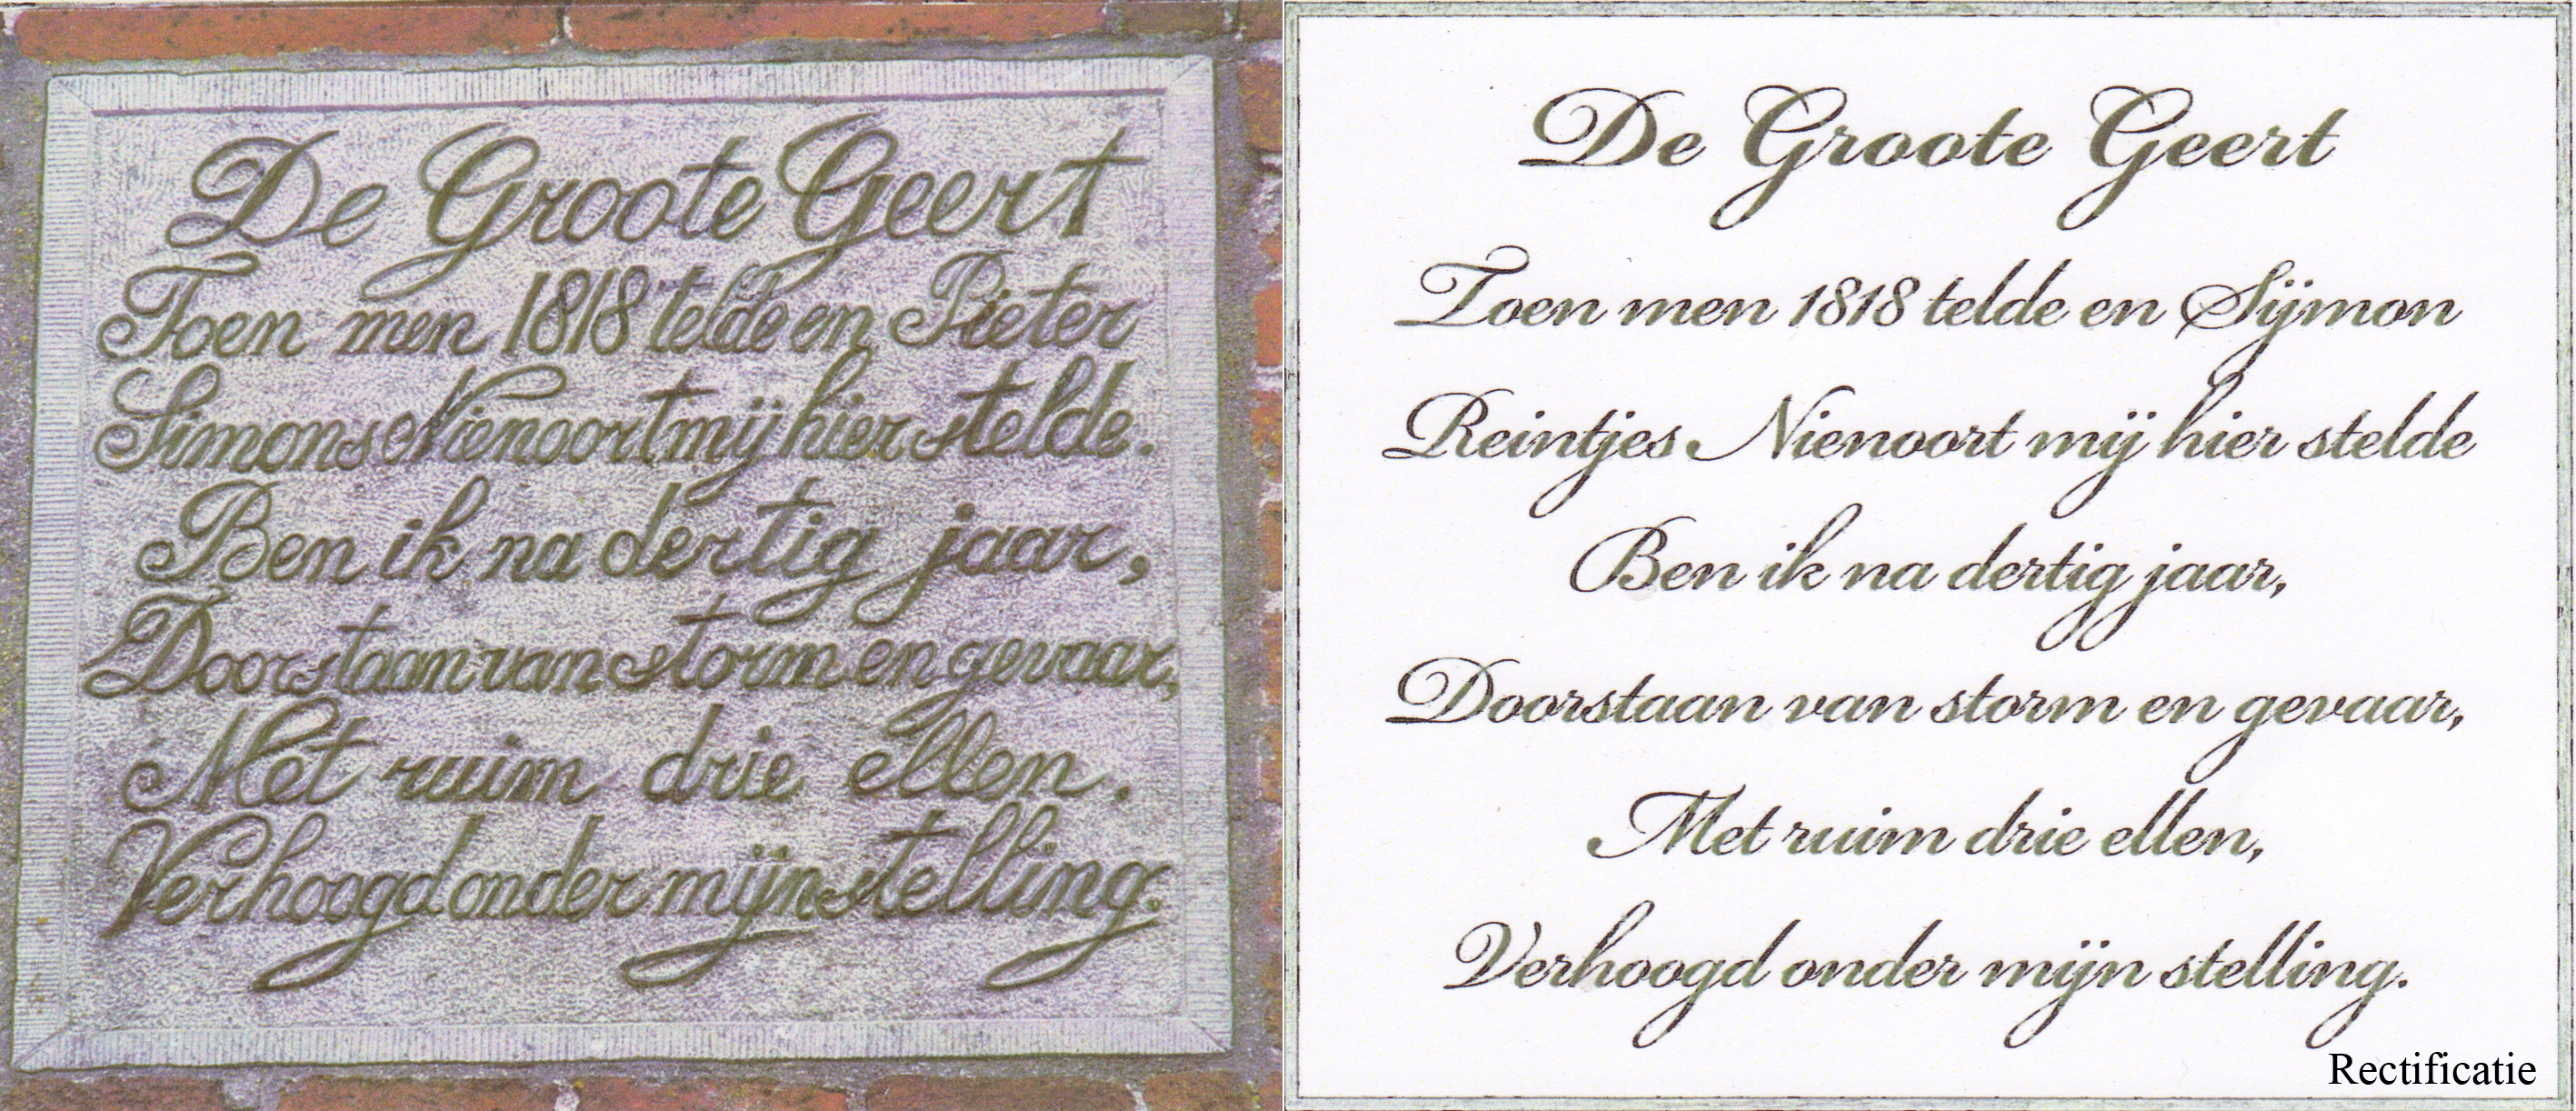 De Groote Geert
Toen men 1818 telde en Pieter
Simons Nienoort mij hier stelde.
Ben ik na dertig jaar,
Doorstaan van storm en gevaar,
Met ruim drie ellen.
Verhoogd onder mijn stelling.
De Groote Geert
Toen men 1818 telde en Sijmon
Reintjes Nienoort mij hier stelde
Ben ik na dertig jaar,
Doorstaan van storm en gevaar,
Met ruim drie ellen,
Verhoogd onder mijn stelling.
Rectificatie